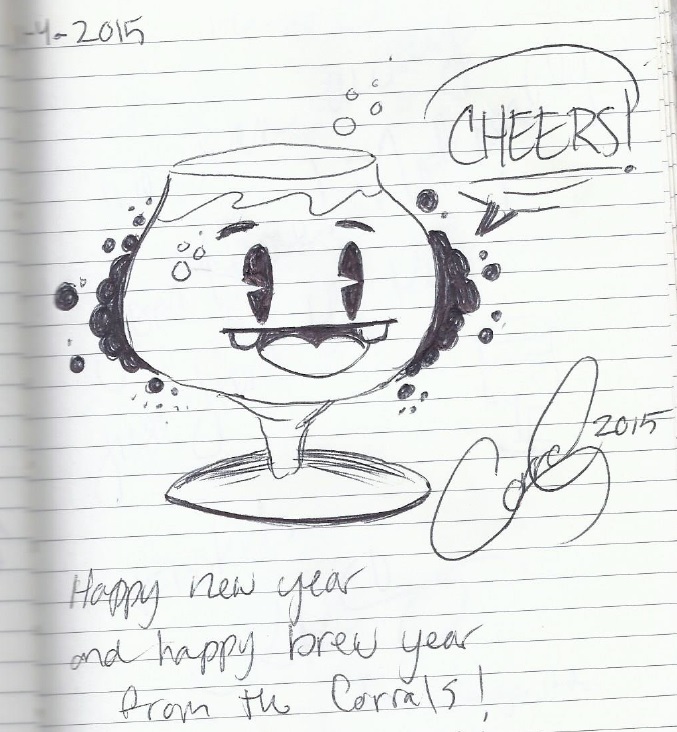 -4-2015
CHEERS!
2015
Happy new year
and happy brew year
from the Corrals!